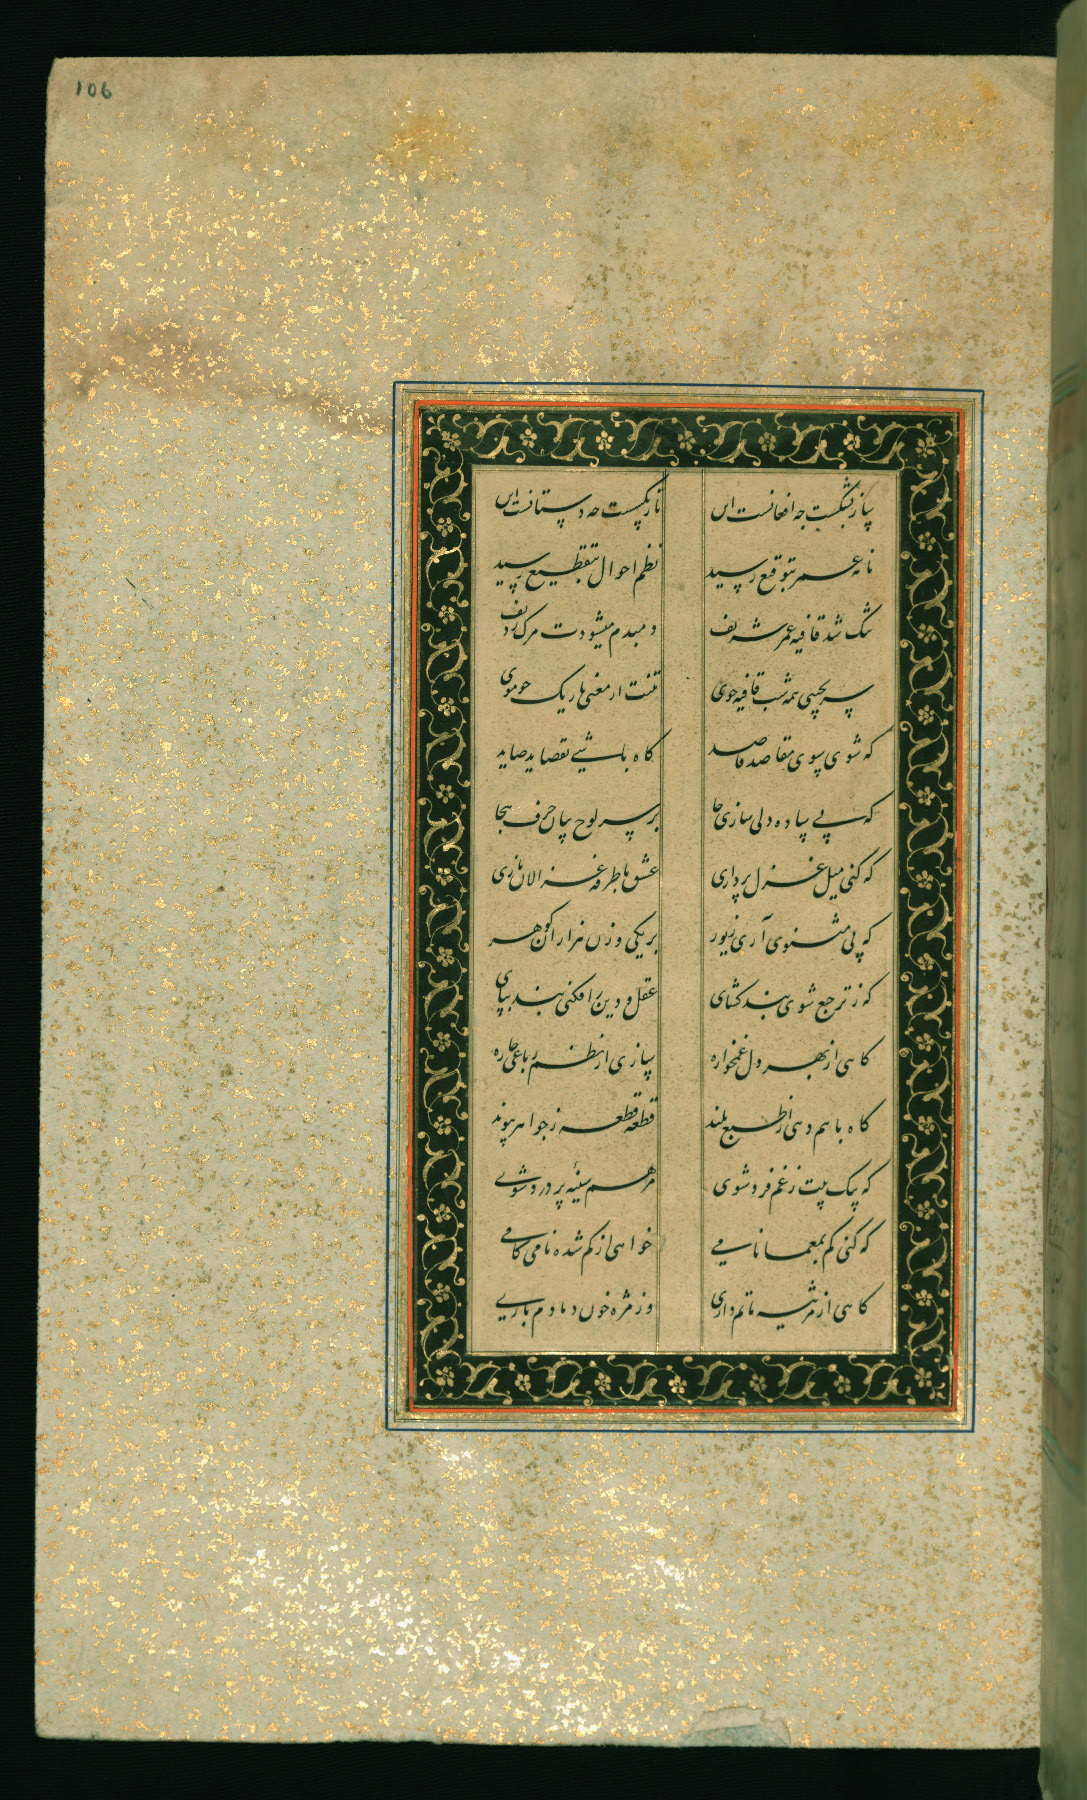 106
ساز بشکست چه افغانست این تار بگسست چه دستانست این
نامه عمر بتوقیع رسید نظم احوال بتقطیع رسید
تنگ شد قافیه عمر شریف دمبدم میشودت مرگ ردیف
سر بجیبی همه شب قافیه جوی تنت از معنی باریک چو موی
گه شوی سوی مقاصد قاصد گاه باشی بقصاید صاید
گه پی ساده دلی سازی جا بر سر لوح بیان حرف هجا
گه کنی میل غزل پردازی عشق با طرفه غزالان بازی
گه پی مثنوی آری زیور بر یکی وزن هزاران گوهر
گه ز ترجیع شوی بند گشای عقل و دین را فکنی بند بپای
گاهی از بهر دل غمخواره سازی از نظم رباعی چاره
گاه با هم دهی از طبع بلند قطعه قطعه ز جواهر پیوند
گه بیک بیت ز غم فرد شوی مرهم سینه پر درد شوی
گه کنی گم بمعما نامی خواهی از گم شده نامی کامی
گاهی از مرثیه ماتم داری وز مژه خون دمادم باری